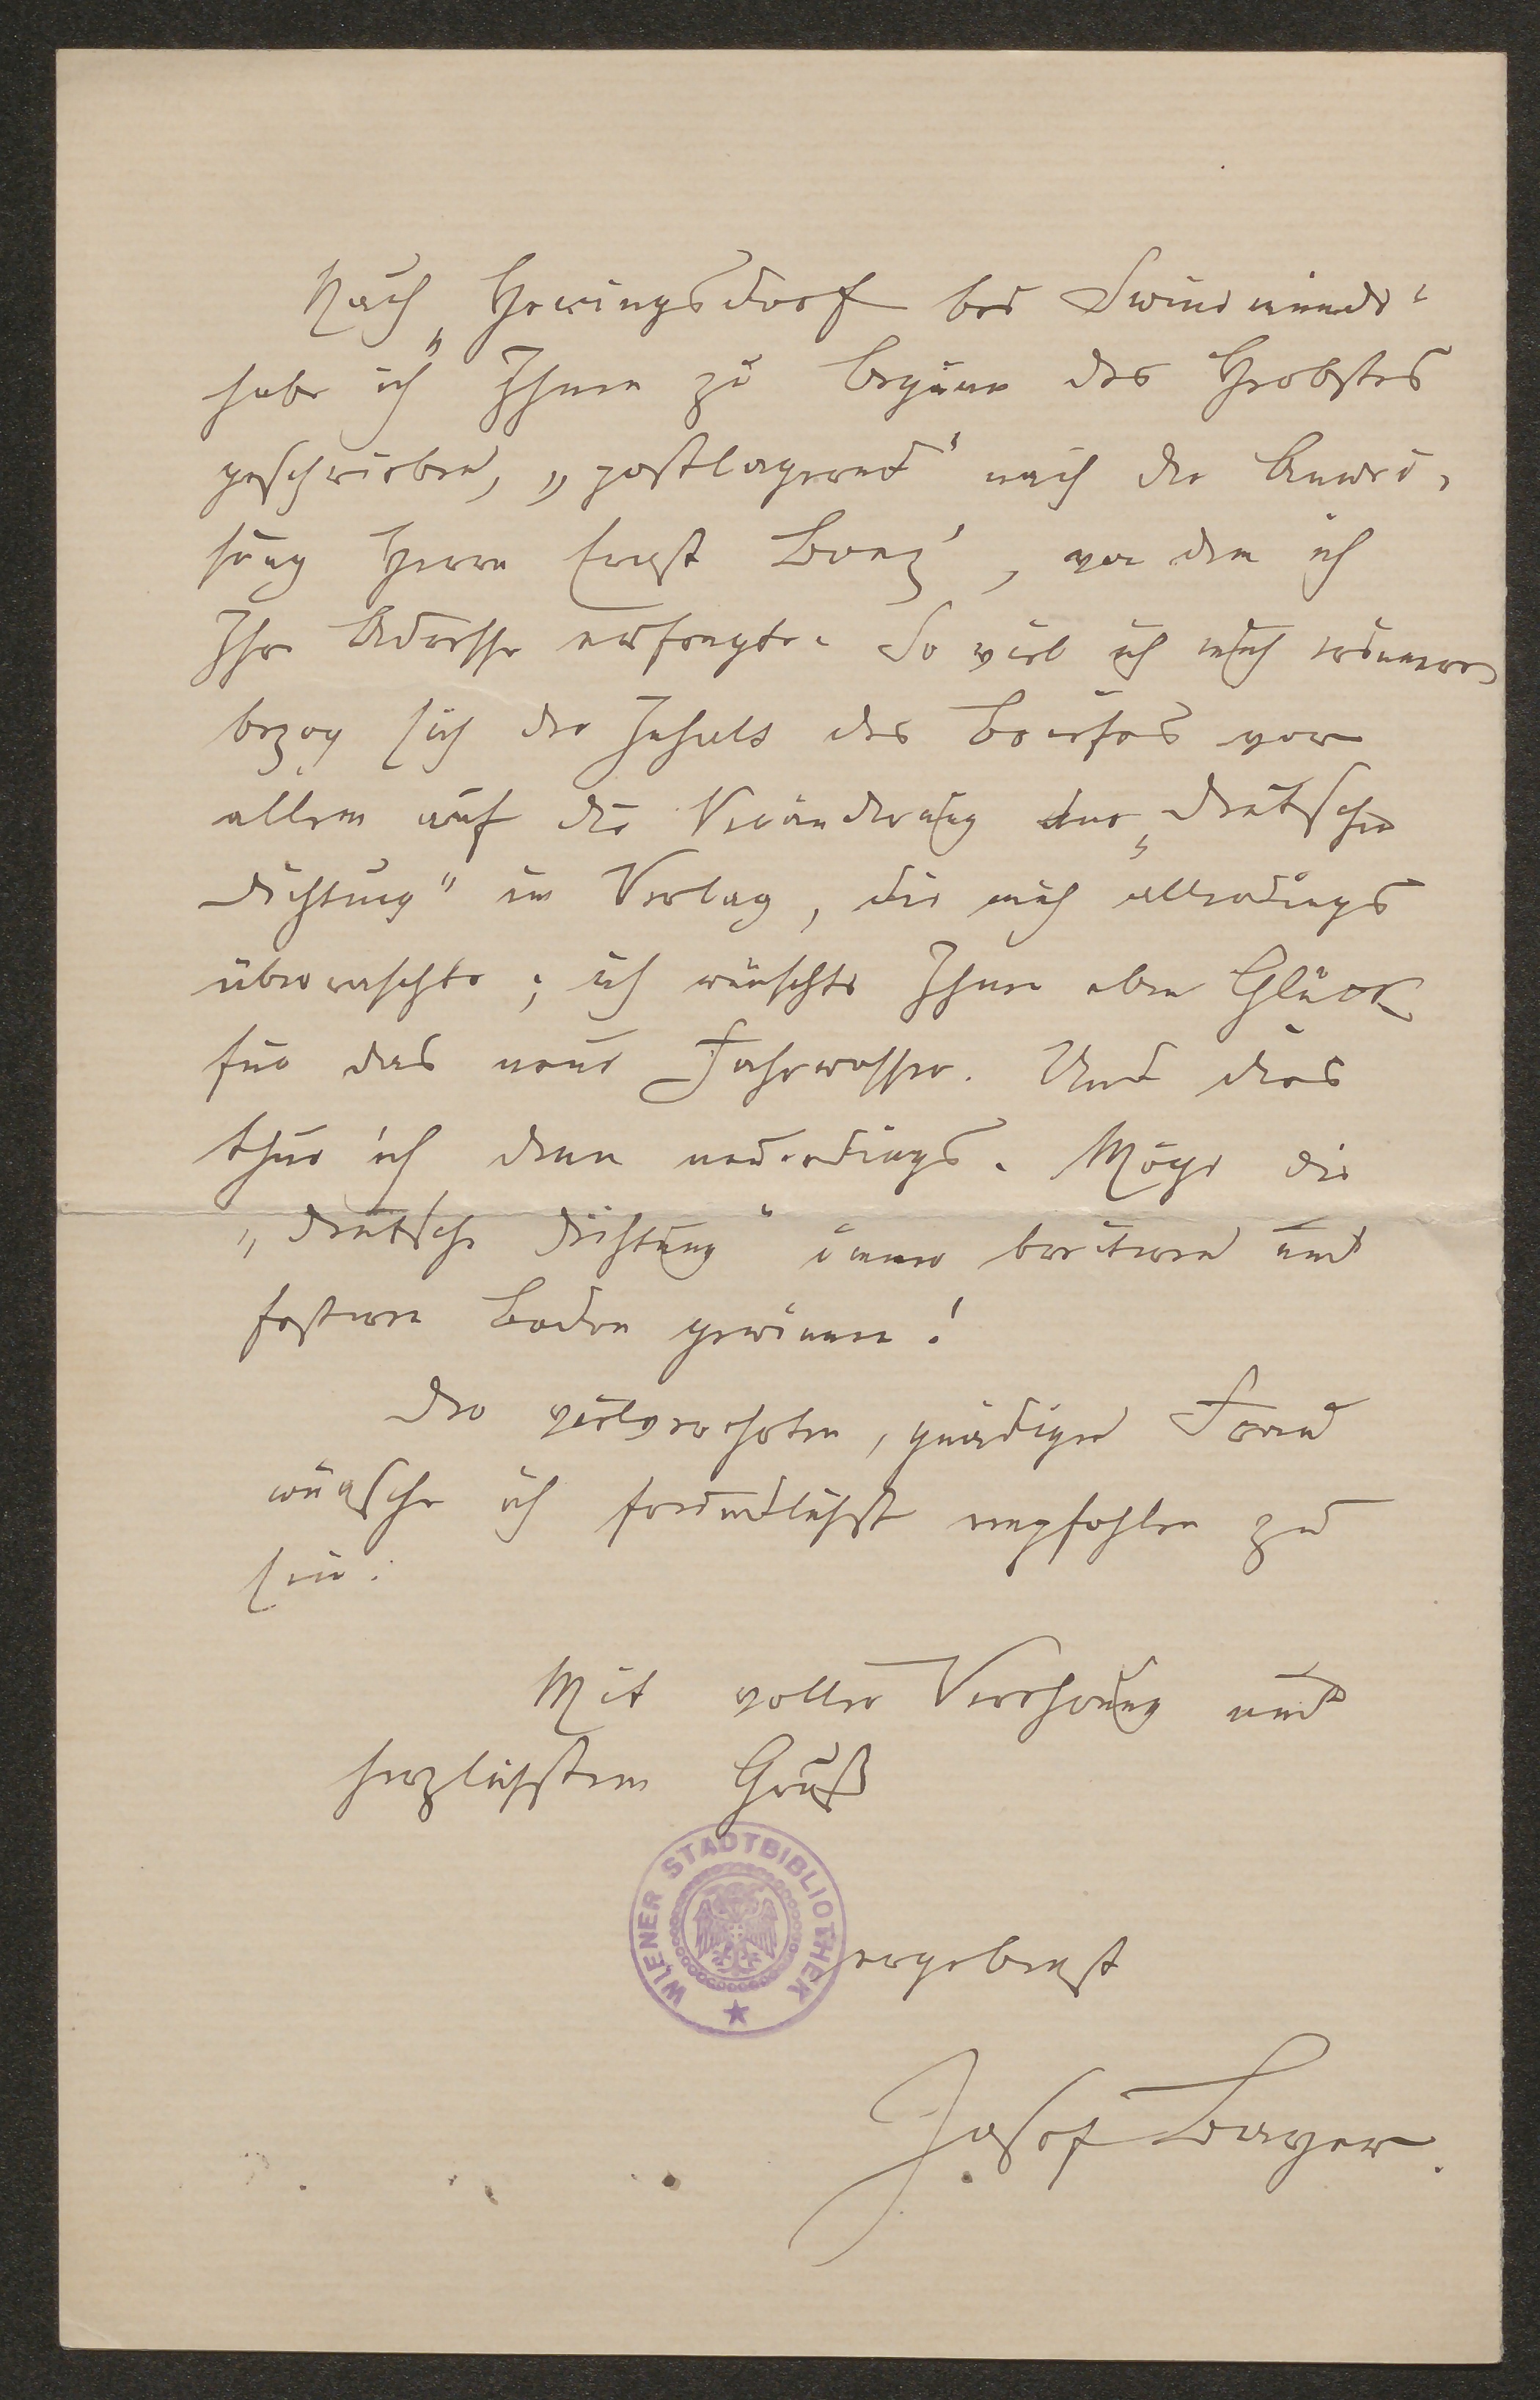 Nach „Heringsdorf bei Swinemünde“
habe ich Ihnen zu Beginn des Herbstes
geschrieben, „postlagernd“ nach der Anwei-
sung Herrn Ernst Bonz', von dem ich
Ihre Adresse erfragte. So viel ich mich erinnere
bezog sich der Inhalt des Briefes vor
allem auf die Veränderung der „Deutschen
Dichtung“ im Verlag, die mich allerdings
überraschte; ich wünschte Ihnen aber Glück
für das neue Fahrwasser. Und dies
thue ich denn neuerdings. Möge die
„Deutsche Dichtung“ immer breiteren und
festeren Boden gewinnen!
Der vielverehrten, gnädigen Frau
wünsche ich freundlichst empfohlen zu
sein.
Mit voller Verehrung und
herzlichstem Gruß
WIENER STADTBIBLIOTHEK
ergebenst
Josef Bayer.